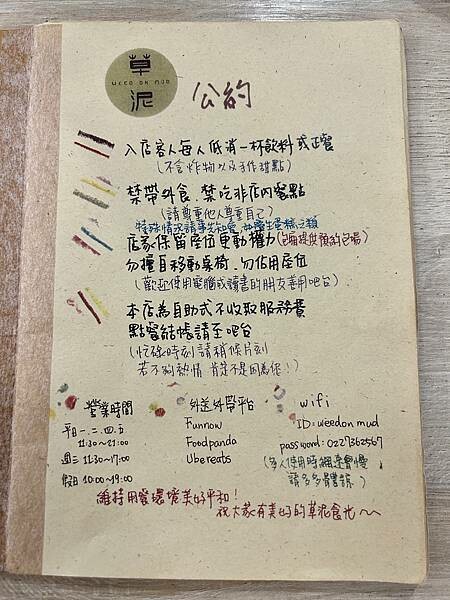 草
WEED ON MUD
泥
公約
入店客人每人低消一杯飲料或正餐
(不含炸物以及手作甜點)
禁帶外食、禁吃非店內餐點
(請尊重他人尊重自己)
特殊情況請事先知會,如慶生蛋糕之類
店家保留座位更動權力(包廂提供預約包場)
勿擅自移動桌椅、勿佔用座位
(歡迎使用電腦或讀書的朋友善用吧台)
本店為自助式不收取服務費
點餐結帳請至吧台
(忙碌時刻請稍候片刻
若不夠熱情 肯定不是因為您!)
營業時間
平日一.二.四.五
11:30~21:00
週三 11:30~17:00
假日 10:00~19:00
外送外帶平台
Funnow
Foodpanda
Ubereats
wifi
ID:weedon mud
password:0227362567
(多人使用時網速會慢,
請多多見諒)
維持用餐環境美好平和!
祝大家有美好的草泥食光~~